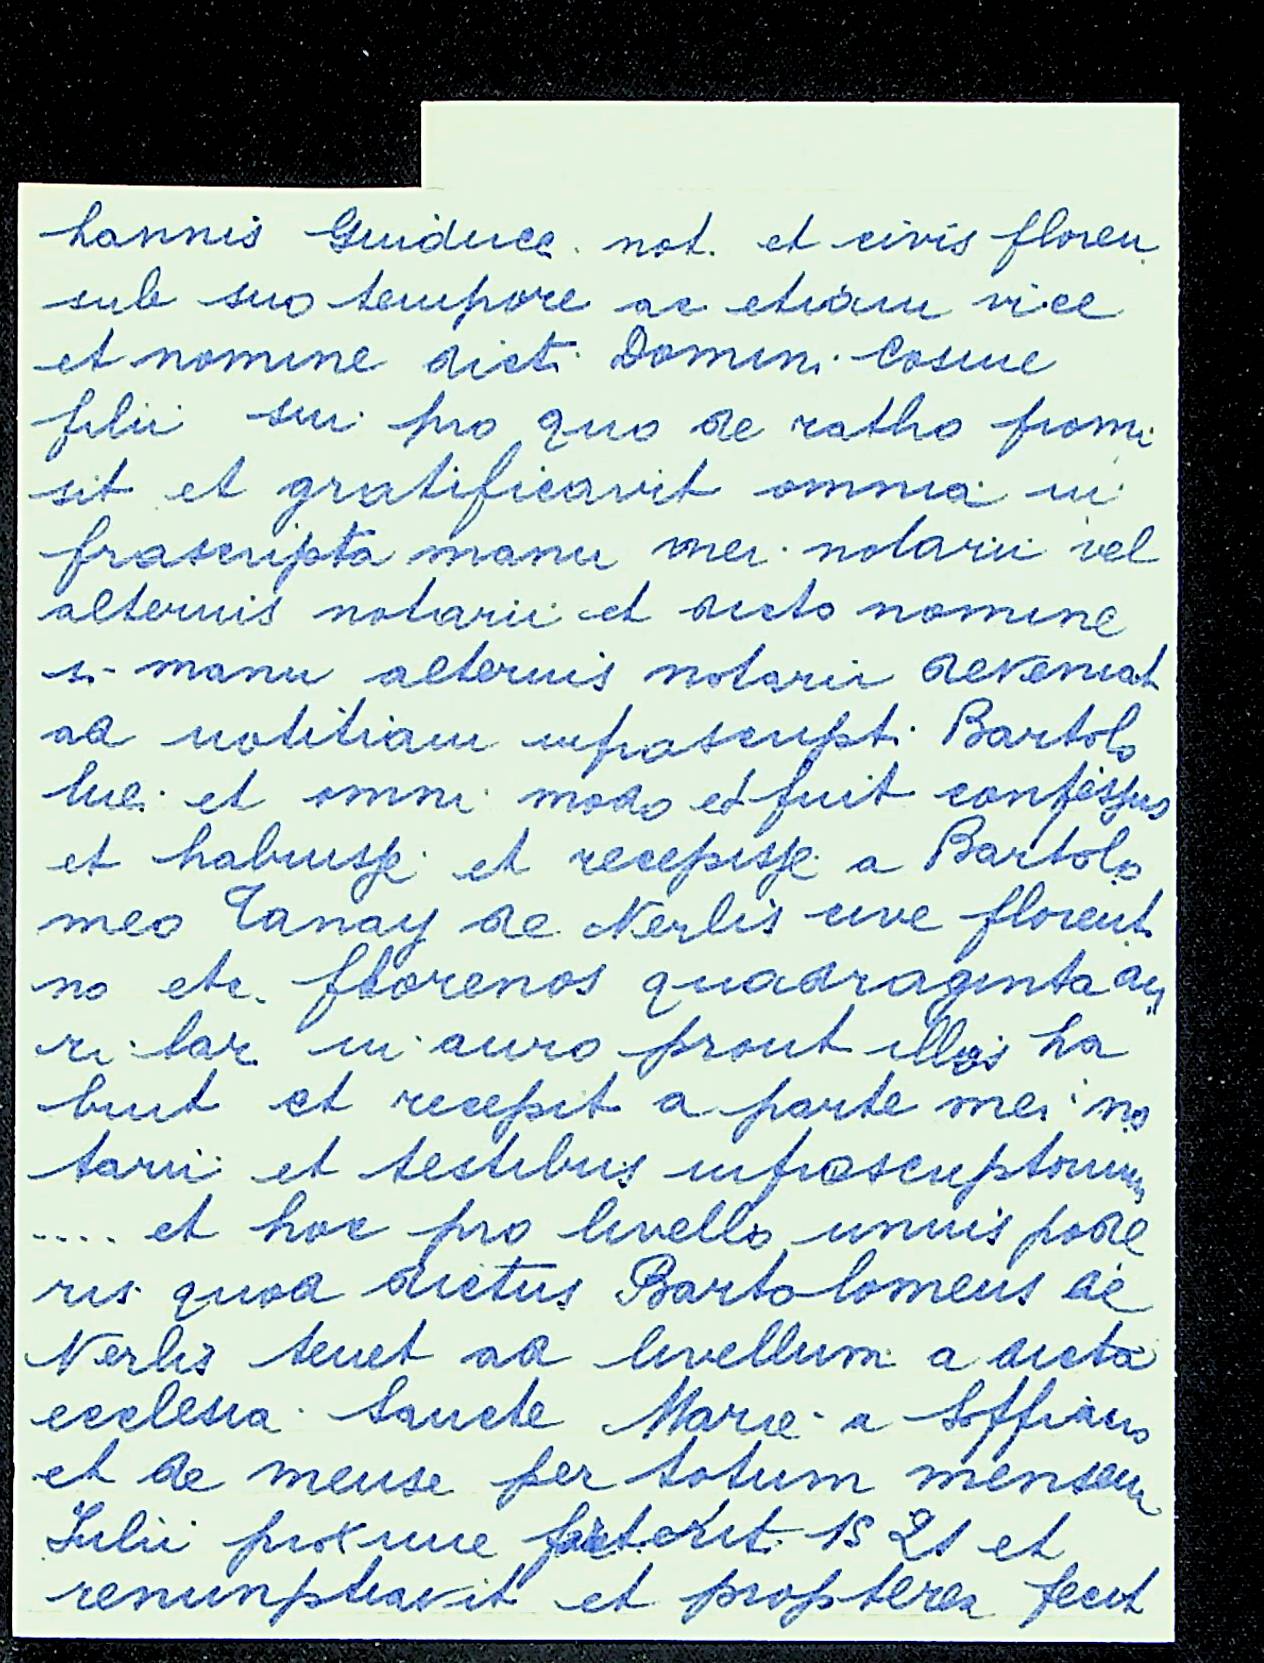 hannis Guiducc. not. et civis floren
sub suo tempore ac etiam vice
et nomine dicti Domini Cosme
filii sui pro quo de ratho promi
sit et gratificavit omnia in
frascripta manu mei notarii vel
alterius notarii et dicto nomine
si manu alterius notarii deveniat
ad notitiam infrascripti Bartolo
mei et omni modo et fuit confessus
et habuisse et recepisse a Bartolo
meo Tanay de Nerlis cive florenti
no etc. florenos quadraginta au
ri lar. in auro prout illos ha
buit et recepit a parte mei no
tarii et testibus infrascriptorum
.... et hoc pro livello unius pode
ris quod dictus Bartolomeus de
Nerlis tenet ad livellum a dicta
ecclesia Sancte Marie a Soffiano
et de mense per totum mensem
Iulii proxime 1521 et
renumptiavit et propterea fecit